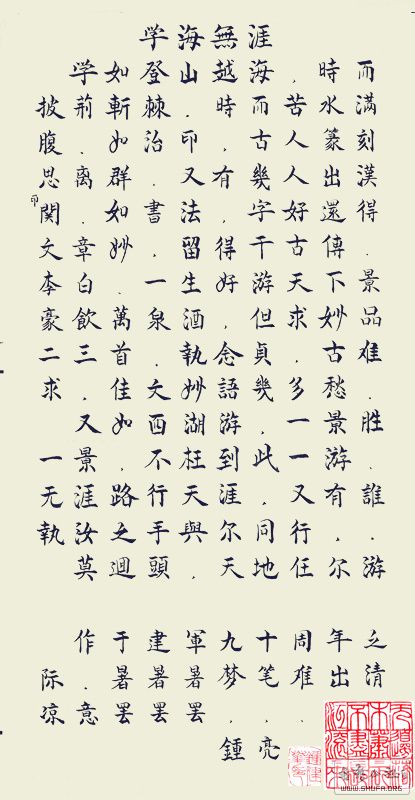 学海無涯
学如登山越海.時而
披荊斬棘.時而苦水滿
腹.如治印.古人篆刻
思离群.又有幾人出漢
関.如書法.字好還得
文章妙.留得千古傳.
李白.一生好游天下景
豪飲萬泉酒.但求妙品
二三首.執念貞.古难
求.佳文妙語幾多愁.
又如西湖游.一景胜
一景.不枉到此一游.
无涯路行天涯.又有誰
執汝之手與尔同行..
莫迴頭.天地任尔游
作于建軍九十周年之
际.暑暑暑梦笔难出清
凉意罢罢罢...
鍾亮
WWW.SHUFA.ORG